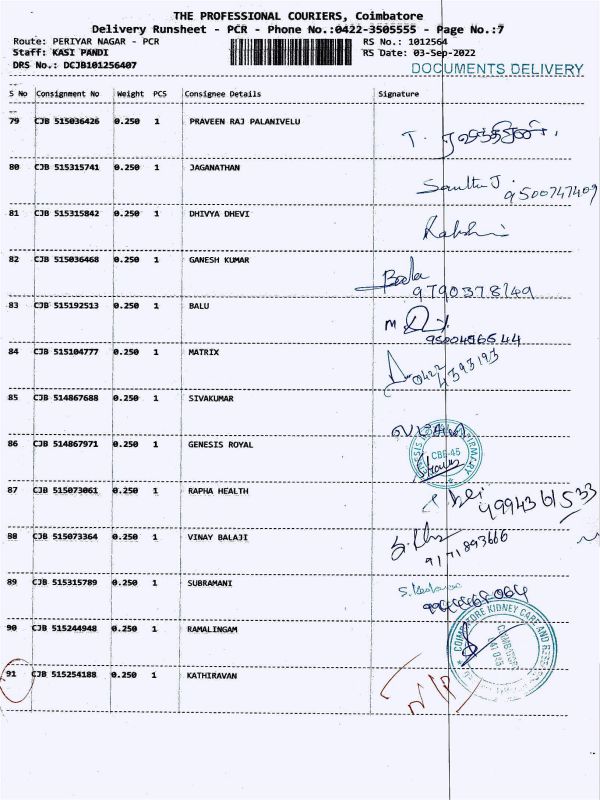 THE PROFESSIONAL COURIERS, Coimbatore
Delivery Runsheet - PCR - Phone No.:0422-3505555 - Page No.:7
Route: PERIYAR NAGAR - PCR RS No.: 1012564
Staff: KASI PANDI RS Date: 03-Sep-2022
DRS No.: DCJB101256407 DOCUMENTS DELIVERY
S No Consignment No Weight PCS Consignee Details Signature
79 CJB 515036426 0.250 1 PRAVEEN RAJ PALANIVELU
80 CJB 515315741 0.250 1 JAGANATHAN
9500747409
81 CJB 515315842 0.250 1 DHIVYA DHEVI
82 CJB 515036468 0.250 1 GANESH KUMAR
Bala
9790378149
83 CJB 515192513 0.250 1 BALU
9500496544
84 CJB 515104777 0.250 1 MATRIX
0422
4393193
85 CJB 514867688 0.250 1 SIVAKUMAR
86 CJB 514867971 0.250 1 GENESIS ROYAL
CBE-45
87 CJB 515073061 0.250 1 RAPHA HEALTH
88 CJB 515073364 0.250 1 VINAY BALAJI
9171893666
89 CJB 515315789 0.250 1 SUBRAMANI
90 CJB 515244948 0.250 1 RAMALINGAM
COIMBATORE KIDNEY CARE AND
91 CJB 515254188 0.250 1 KATHIRAVAN